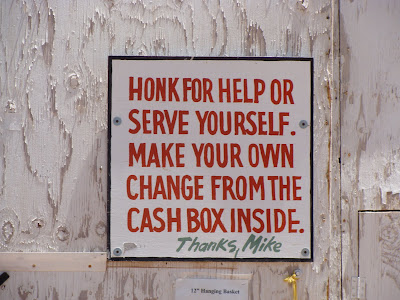 HONK FOR HELP OR
SERVE YOURSELF.
MAKE YOUR OWN
CHANGE FROM THE
CASH BOX INSIDE.
Thanks, Mike
12" Hanging Basket